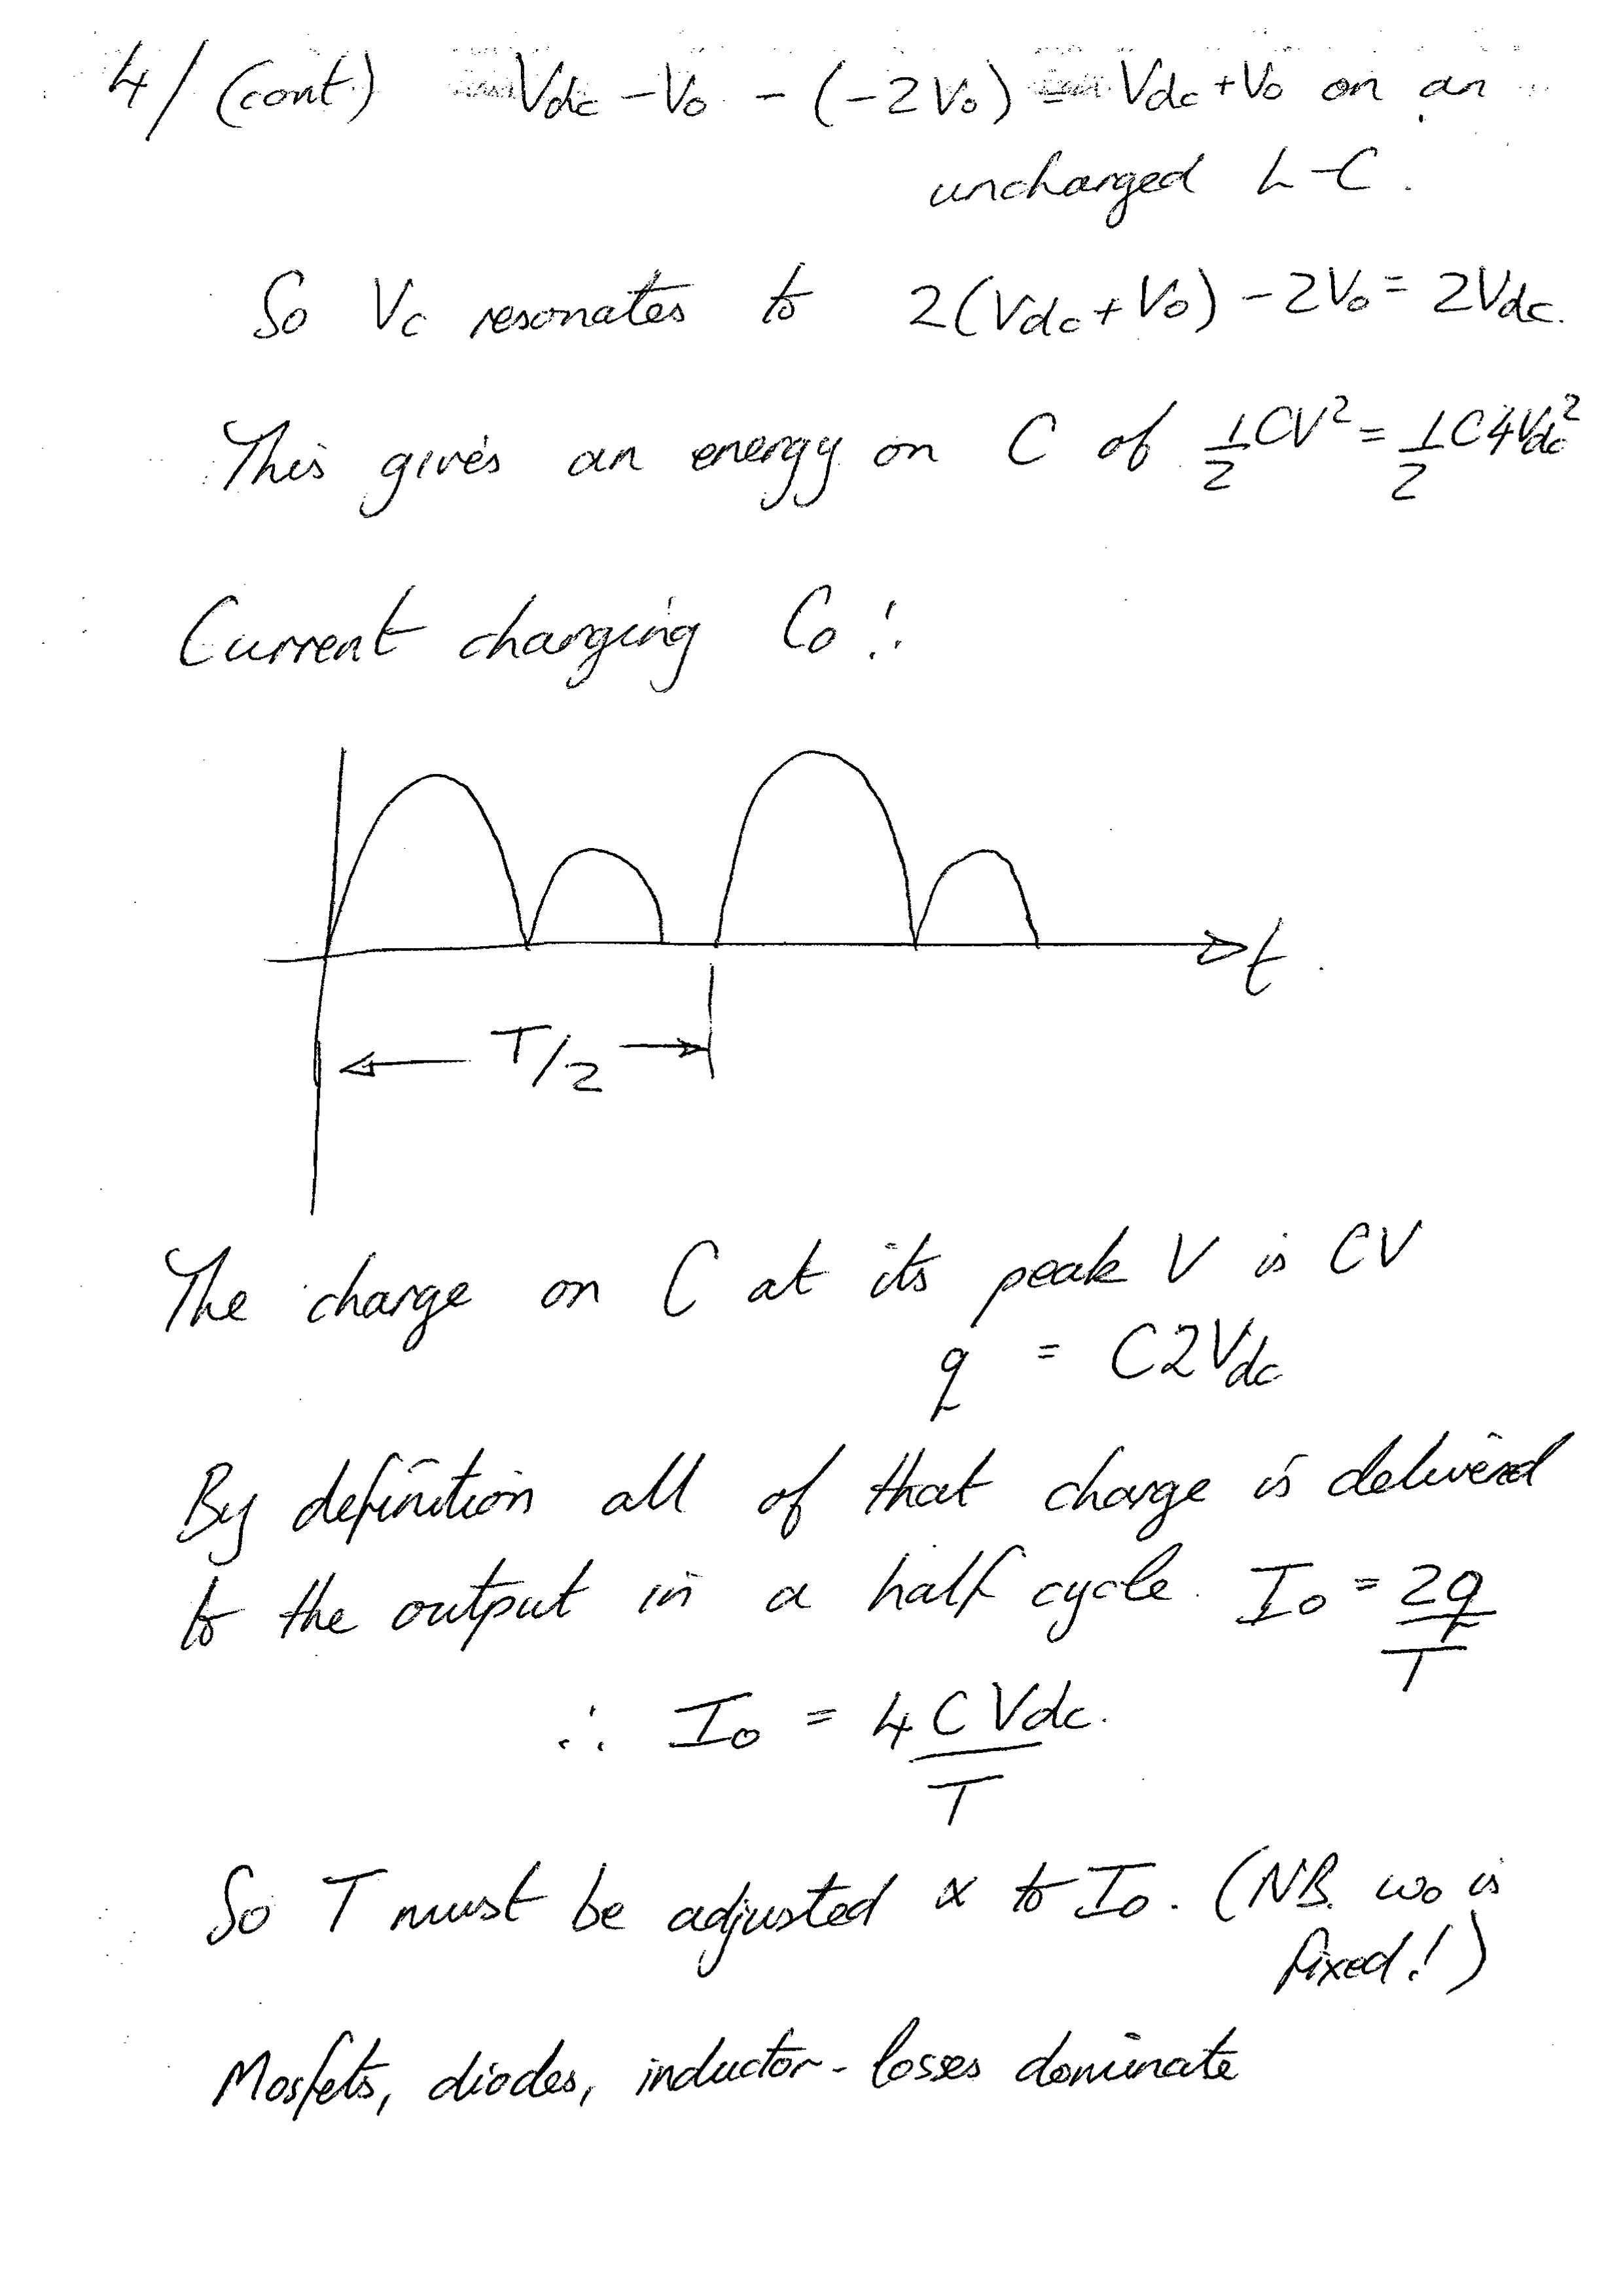 4/ (cont) Vdc - Vo - (-2Vo) = Vdc + Vo on an
uncharged L-C.
So Vc resonates to 2(Vdc + Vo) - 2Vo = 2Vdc.
This gives an energy on C of 1/2 CV² = 1/2 C4Vdc²
Current charging Co :
t
T/2
The charge on C at its peak V is CV
q = C2Vdc
By definition all of that charge is delivered
to the output in a half cycle. Io = 2q/T
∴ Io = 4CVdc./T
So T must be adjusted ∝ to Io. (NB. ωo is
fixed!)
Mosfets, diodes, inductor - losses dominate